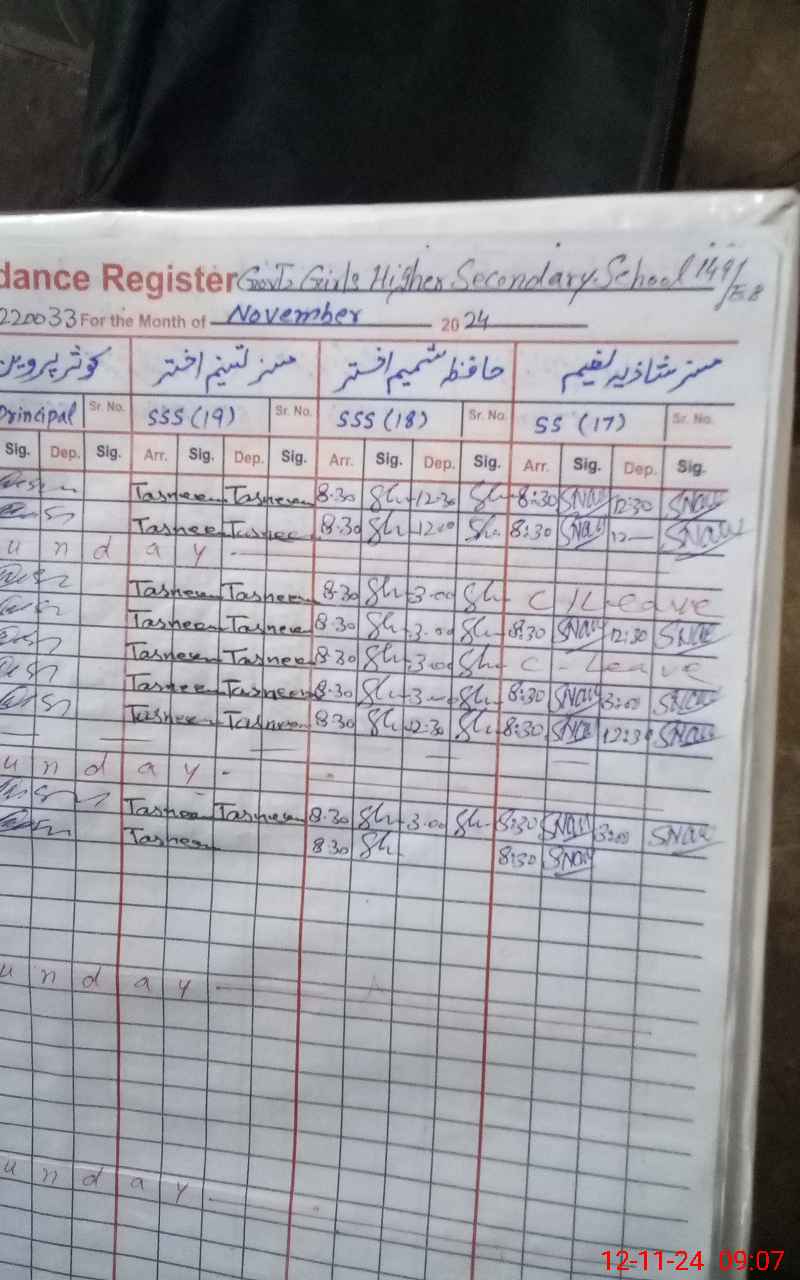 dance Register Govt. Girls Higher Secondary School 149/EB
220033 For the Month of November 2024
کوثر پروین مسز تسنیم اختر حافظ شمیم اختر مسز شازیہ نعیم
Principal Sr. No. SSS (19) Sr. No. SSS (18) Sr. No. SS (17) Sr. No.
Sig. Dep. Sig. Arr. Sig. Dep. Sig. Arr. Sig. Dep. Sig. Arr. Sig. Dep. Sig.
Tasneem Tasneem 8.30 Sh 12.30 Sh 8:30 SNaz 12:30 SNaz
Tasneem Tasneem 8.30 Sh 12.00 Sh 8:30 SNaz 12 — SNaz
u n d a y
Tasneem Tasneem 8.30 Sh 3.00 Sh C/Leave
Tasneem Tasneem 8.30 Sh 3.00 Sh 8:30 SNaz 12:30 SNaz
Tasneem Tasneem 8.30 Sh 3.00 Sh C-Leave
Tasneem Tasneem 8.30 Sh 3.00 Sh 8:30 SNaz 3:00 SNaz
Tasneem Tasneem 8.30 Sh 12.30 Sh 8:30 SNaz 12:30 SNaz
u n d a y -
Tasneem Tasneem 8.30 Sh 3.00 Sh 8:30 SNaz 3:00 SNaz
Tasneem 8.30 Sh 8:30 SNaz
u n d a y
u n d a y
12-11-24 09:07